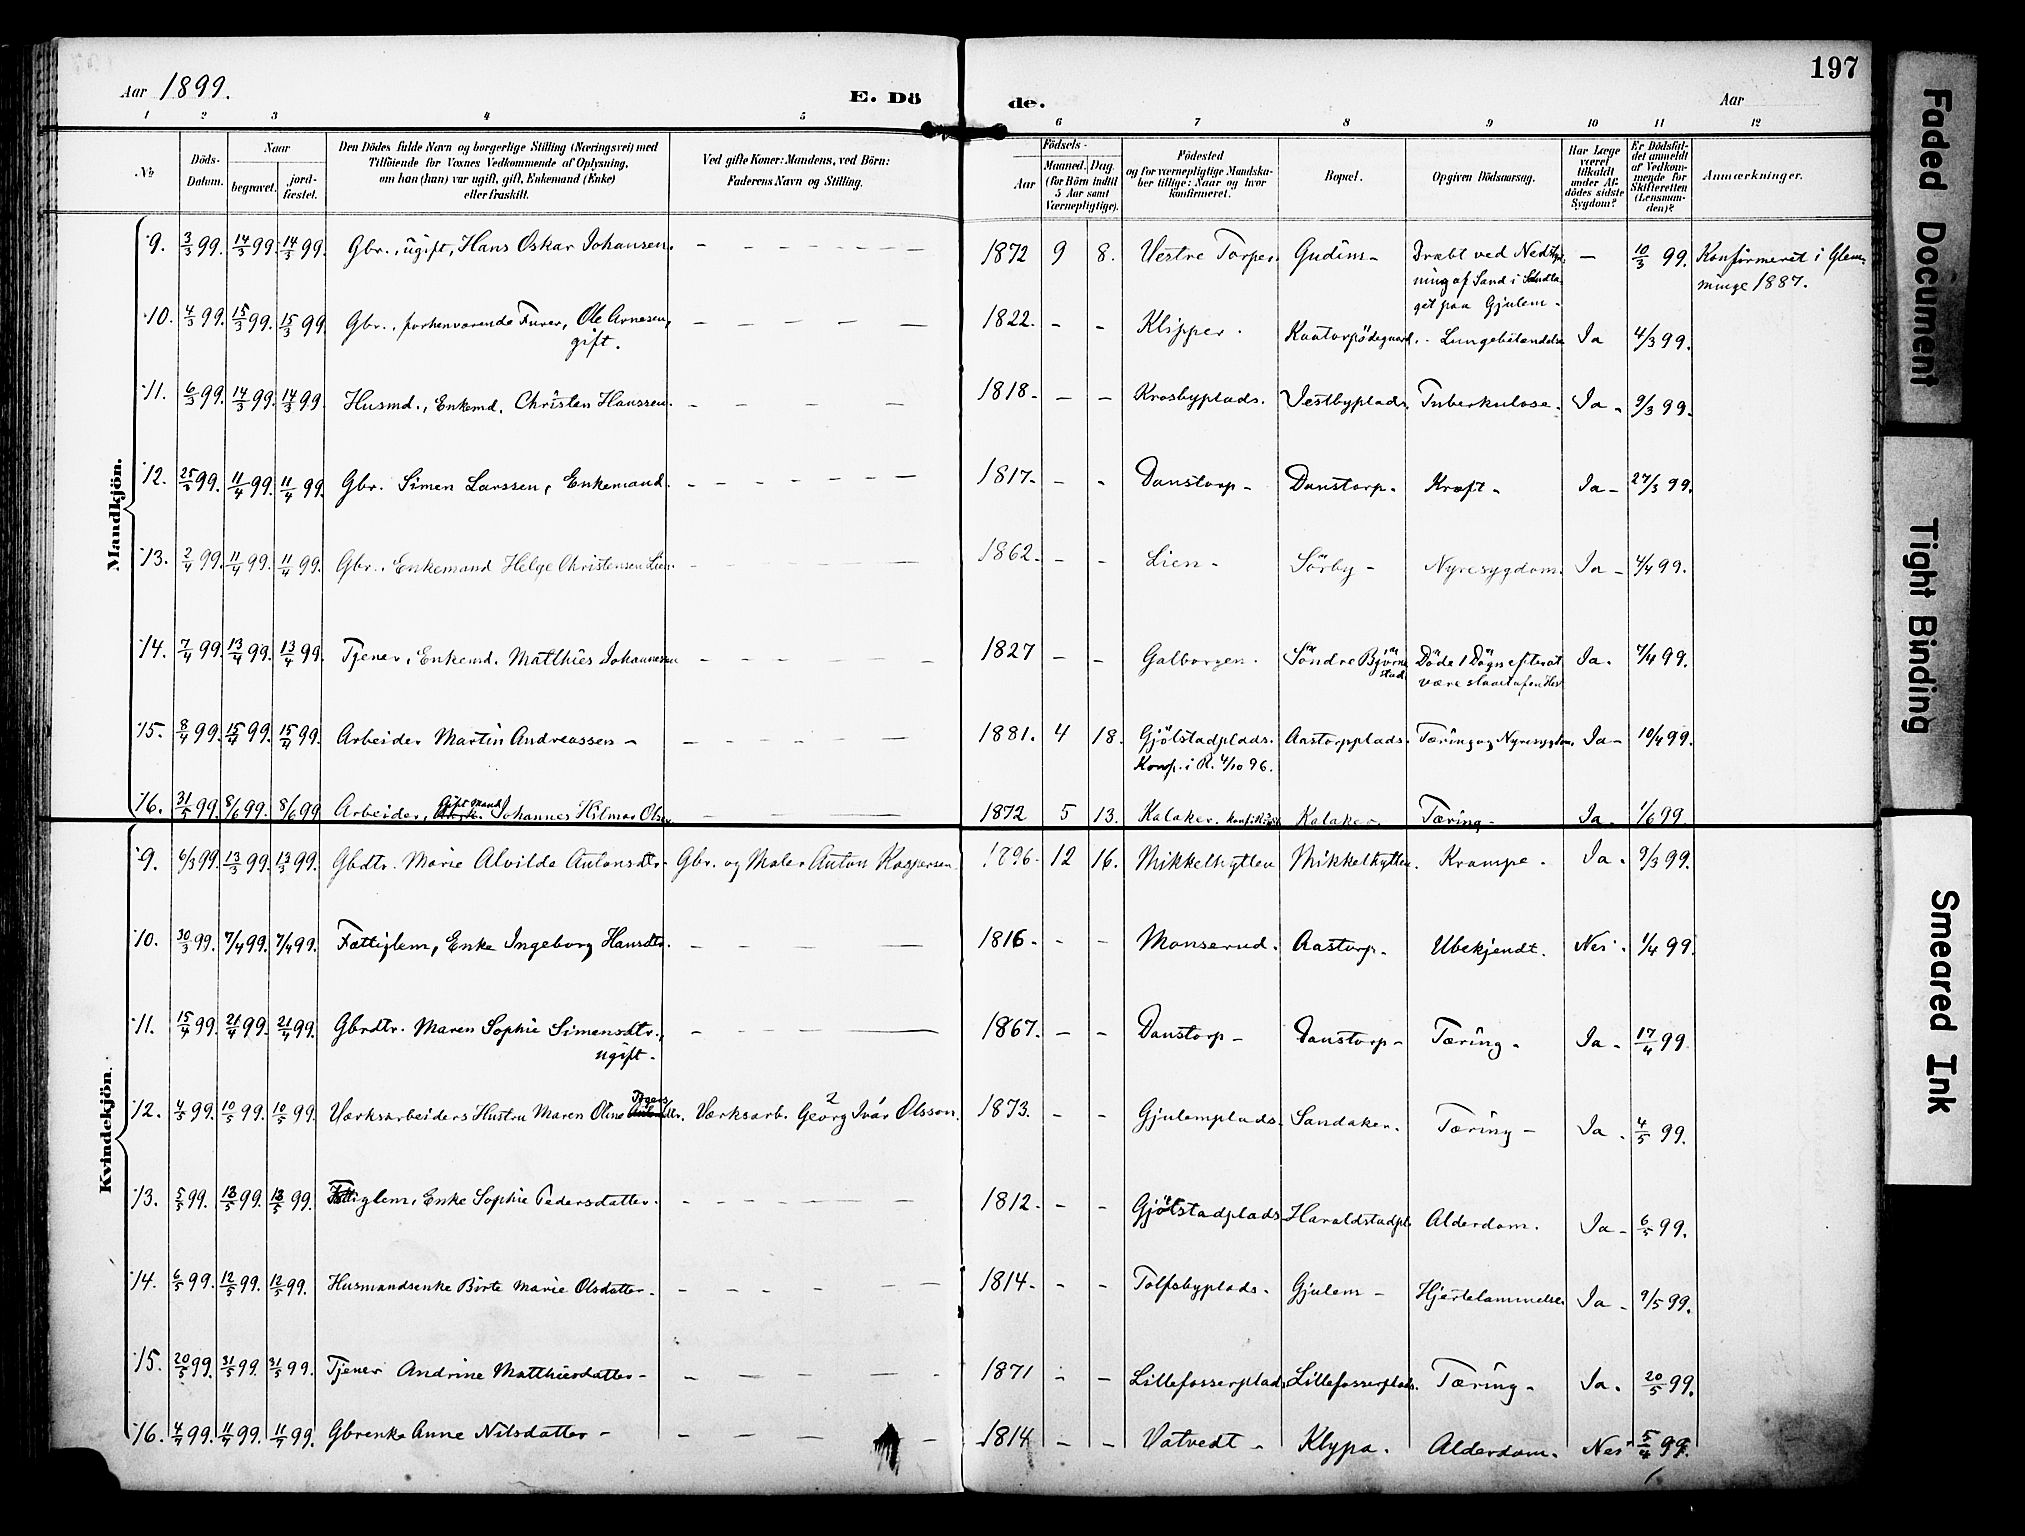 197
Aar 1899.
E. Dö de.
Aar
1 2 3 4 5 6 7 8 9 10 11 12
No
Döds-
Datum.
Naar
begravet.
jord-
fæstet.
Den Dödes fulde Navn og borgerlige Stilling (Næringsvei) med
Tilföiende for Voxnes Vedkommende af Oplysning,
om han (hun) var ugift, gift, Enkemand (Enke)
eller fraskilt.
Ved gifte Koner: Mandens, ved Börn:
Faderens Navn og Stilling.
Födsels-
Aar
Maaned. Dag.
(for Börn indtil
5 Aar samt
Værnepligtige).
Födested
og for værnepligtige Mandska-
ber tillige: Naar og hvor
konfirmeret.
Bopæl.
Opgiven Dödsaarsag.
Har Læge
været
tilkaldt
under Af-
dödes sidste
Sygdom?
Er Dödsfal-
det anmeldt
af Vedkom-
mende for
Skifteretten
(Lensman-
den)?
Anmærkninger.
Mandkjön.
9. 3/3 99. 14/3 99. 14/3 99. Gbr., ugift, Hans Oskar Johansen. 1872 9 8. Vestre Torper Gudim - Dræbt ved
ning af Sand i
get paa Gjulem - - 10/3 99. Konfirmeret i Glem-
minge 1887.
10. 4/3 99. 15/3 99. 15/3 99. Gbr., forhenværende Furer, Ole Arnesen,
gift. 1822. - - Klipper. Lungebetændelse Ja 4/3 99.
11. 6/3 99. 14/3 99. 14/3 99. Husmd., Enkemd. Christen Hanssen. 1818. - - Krosbyplads. Vestbyplads. Tuberkulose. Ja - 9/3 99.
12. 25/3 99. 11/4 99. 11/4 99. Gbr. Simen Larssen, Enkemand. 1817. - - Danstorp - Danstorp. Kræft - Ja - 27/3 99.
13. 2/4 99. 11/4 99. 11/4 99. Gbr., Enkemand Helge Christensen Lien. 1862. - - Lien - Sörby - Nyresygdom. Ja - 4/4 99.
14. 7/4 99. 13/4 99. 13/4 99. Tjener, Enkemd. Matthies Johannesen 1827 - - Galborgen. Söndre Bjørne-
stad. Döde 1 Dögn efter at
være slaaet af en Hest Ja. 7/4 99.
15. 8/4 99. 15/4 99. 15/4 99. Arbeider Martin Andreassen - 1881. 4 18. Gjölstadplads.
Konf. i R. 4/10 96. Aastorpplads. Tæring og Nyresygdom. Ja - 10/4 99.
16. 31/5 99. 8/6 99. 8/6 99 Arbeider, Gift Mand Johannes Hilmar Olsen 1872 5 13. Kalaker. Kalaker - Tæring - Ja. 1/6 99.
Kvindekjön.
9. 6/3 99. 13/3 99. 13/3 99. Gbdtr. Marie Alvilde Antonsdtr. Gbr. og Maler Anton Kaspersen. 1896. 12 16. Mikkelhytten Mikkelhytten. Krampe. Ja. 9/3 99.
10. 30/3 99. 7/4 99. 7/4 99. Fattiglem, Enke Ingeborg Hansdtr. 1816. - - Monserud. Aastorp. Ubekjendt. Nei. 1/4 99.
11. 15/4 99. 21/4 99. 21/4 99. Gbrdtr. Maren Sophie Simensdtr.,
ugift. 1867. - - Danstorp - Danstorp - Tæring - Ja - 17/4 99.
12. 4/5 99. 10/5 99. 10/5 99. Værksarbeiders Hustru Maren Oline Værksarb. Georg Ivár Olsson. 1873. - - Gjulemplads. Sandaker. Tæring - Ja. 4/5 99.
13. 5/5 99. 13/5 99. 13/5 99. Fattiglem, Enke Sophie Pedersdatter. 1812. - - Gjölstadplads Haraldstadpl. Alderdom. Ja - 6/5 99.
14. 6/5 99. 12/5 99. 12/5 99. Husmandsenke Birte Marie Olsdatter. 1814. - - Tolfsbyplads. Gjulem - Hjertelammelse. Ja - 9/5 99.
15. 20/5 99. 31/5 99. 31/5 99. Tjener Andrine Matthiesdatter - 1871 - - Lillefosserplads. Lillefosserplads. Tæring - Ja. 20/5 99.
16. 4/7 99. 11/7 99. 11/7 99. Gbrenke Anne Nilsdatter - 1814. - - Vatvedt - Klypa. Alderdom. Nei 99.
Faded Document
Tight Binding
Smeared Ink